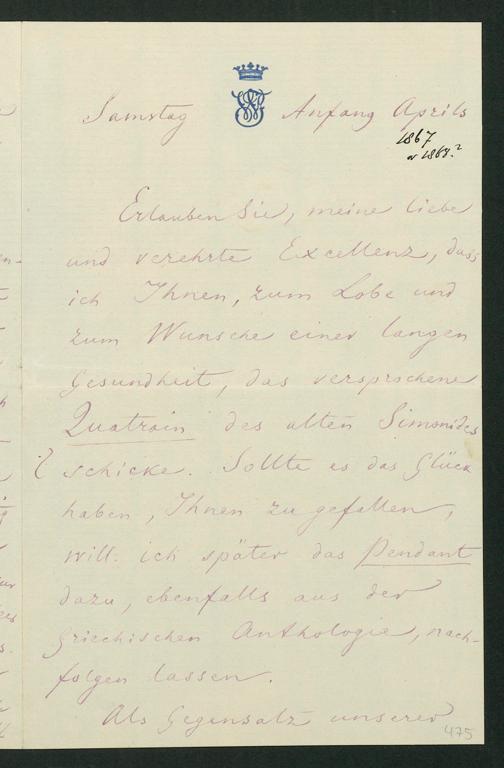 Samstag Anfang Aprils
1867
o 1868.?
Erlauben Sie, meine liebe
und verehrte Excellenz, dass
ich Ihnen, zum Lobe und
zum Wunsche einer langen
Gesundheit, das versprochene
Quatrain des alten Simonides
schicke. Sollte es das Glück
haben, Ihnen zu gefallen,
will ich später das Pendant
dazu, ebenfalls aus der
Griechischen Anthologie, nach-
folgen lassen.
Als Gegensatz unserer
475